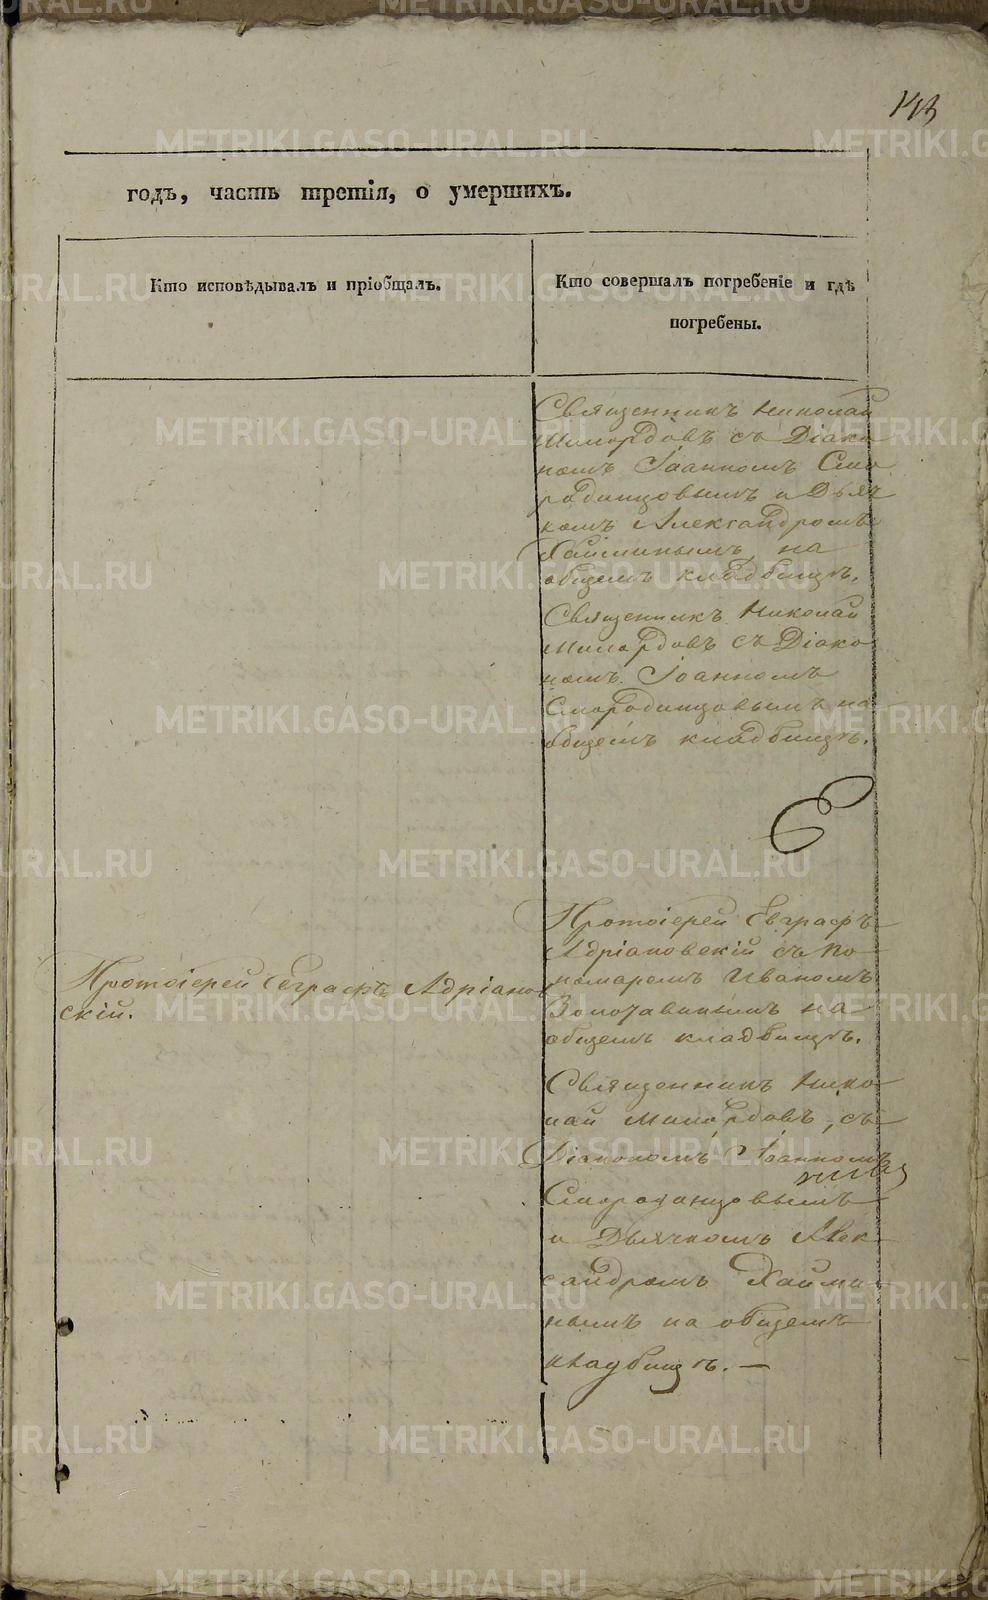 143
годъ, часть третія, о умершихъ.
Кто исповѣдывалъ и пріобщалъ.
Кто совершалъ погребеніе и гдѣ
погребены.
Священникъ Николай
Милордовъ съ Діако
номъ Іоанномъ Смо
родинцовымъ и Дьяч
комъ Александромъ
Хайминымъ, на
общемъ кладбищѣ.
Священникъ Николай
Милордовъ съ Діако
номъ Іоанномъ
Смородинцовымъ на
общемъ кладбищѣ.
Протоіерей Евграфъ
Адріановскій съ по
номаремъ Иваномъ
на
общемъ кладбищѣ.
Протоіерей Евграфъ Адріанов
скій.
Священникъ Нико
лай Милордовъ, съ
Діакономъ Іоанномъ
Смородинцовымъ
и Дьячкомъ Алек
сандромъ Хайми
нымъ на общемъ
кладбищѣ. —
METRIKI.GASO-URAL.RU